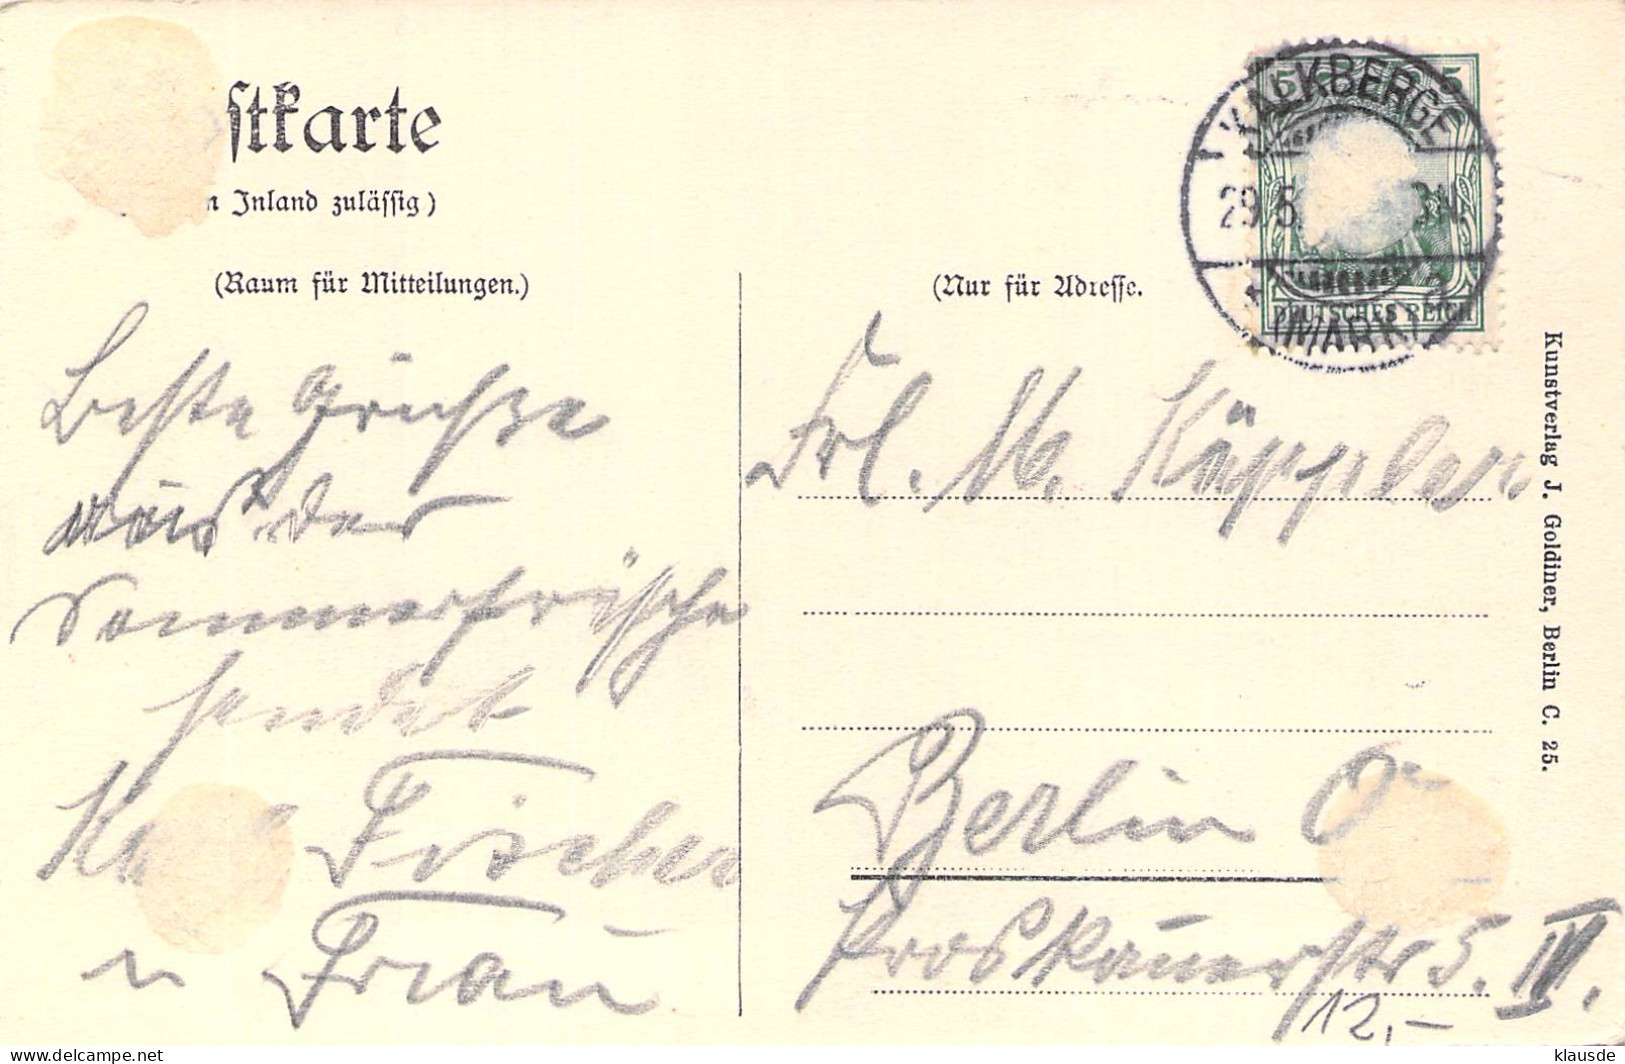 stkarte
n Inland zulässig)
(Raum für Mitteilungen.)
Beste Grüße
aus der
Sommerfrische
sendet
Fischer
u Frau
5 5
DEUTSCHES REICH
KALKBERGE
29.5. 3N.
* (MARK)
(Nur für Adresse.
Frl. M. Käppler
Berlin O
Proskauerstr 5. IV.
12,-
Kunstverlag J. Goldiner, Berlin C. 25.
delcampe.net
klausde